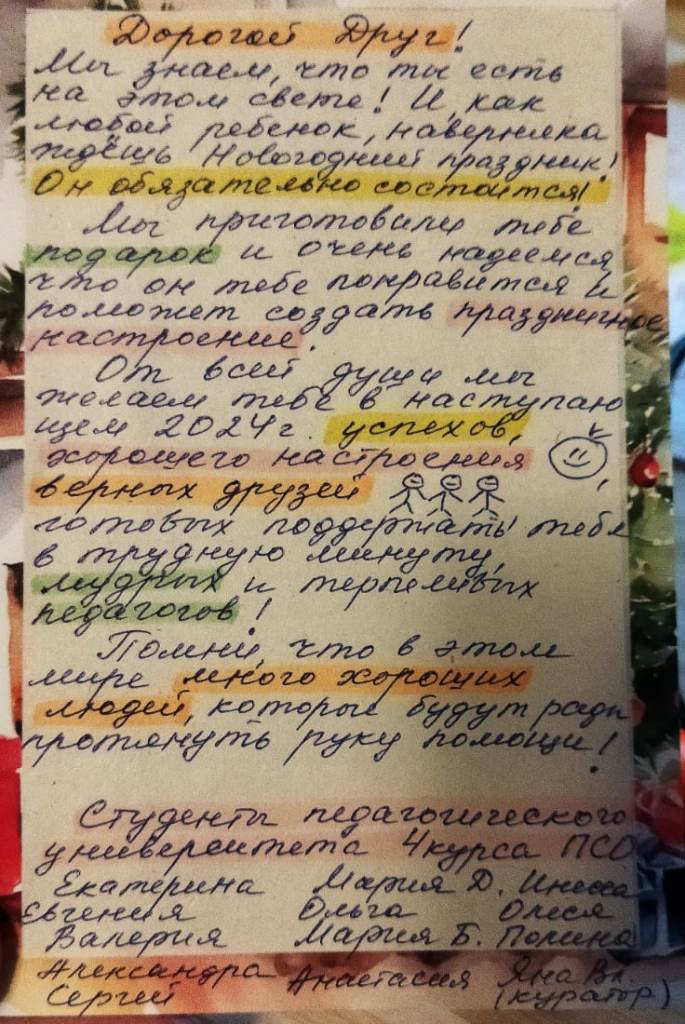 Дорогой Друг!
Мы знаем, что ты есть
на этом свете! И, как
любой ребенок, наверняка
ждёшь Новогодний праздник!
Он обязательно состоится!
Мы приготовили тебе
подарок и очень надеемся,
что он тебе понравится и
поможет создать праздничное
настроение.
От всей души мы
желаем тебе в наступаю
щем 2024г. успехов,
хорошего настроения,
верных друзей
готовых поддержать тебя
в трудную минуту,
мудрых и терпеливых
педагогов!
Помни, что в этом
мире много хороших
людей, которые будут рады
протянуть руку помощи!
Студенты педагогического
университета 4 курса ПСО
Екатерина Мария Д. Инесса
Евгения Ольга Олеся
Валерия Мария Б. Полина
Александра Анастасия Яна Вл.
Сергей (куратор)